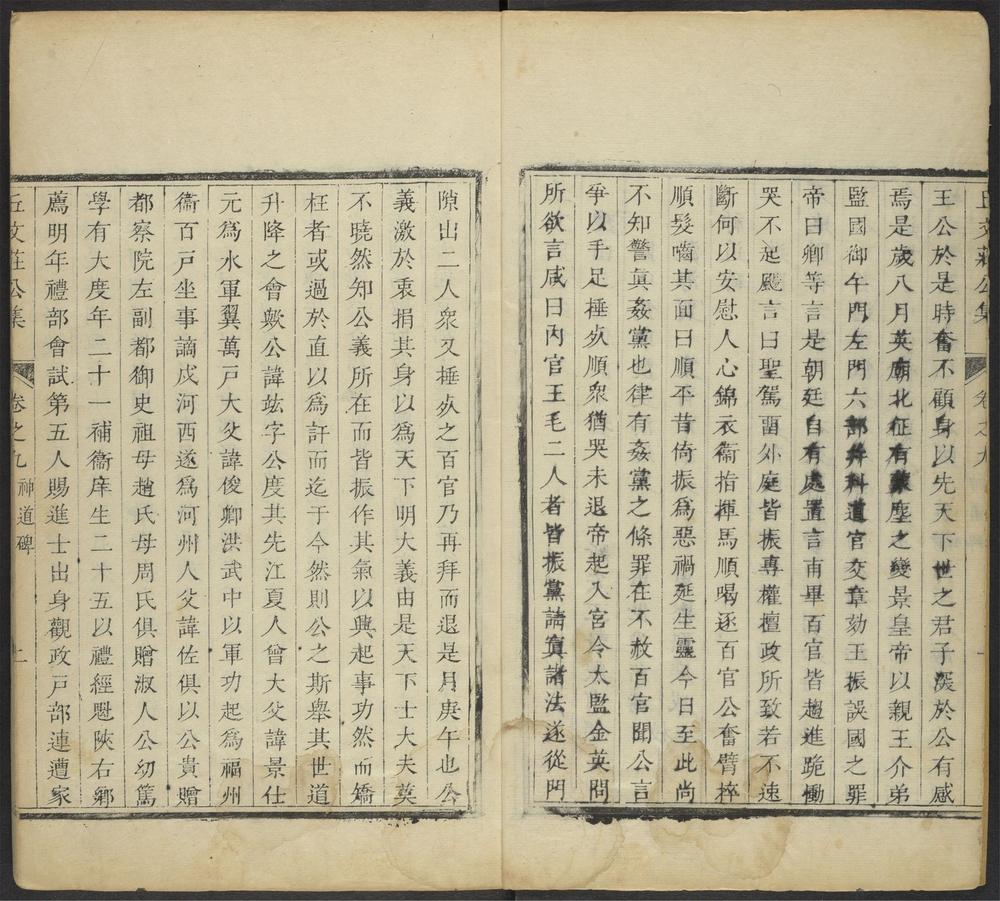 丘文莊公集 卷之九
王公於是時奮不顧身以先天下世之君子深於公有感
焉是歲八月英廟北征有蒙塵之變景皇帝以親王介弟
監國御午門左門六部并科道官交章劾王振誤國之罪
帝曰卿等言是朝廷自有處置言甫畢百官皆趨進跪慟
哭不起颺言曰聖駕畱外庭皆振專權擅政所致若不速
斷何以安慰人心錦衣衞指揮馬順喝逐百官公奮臂捽
順髮嚙其面曰順平昔倚振爲惡禍延生靈今日至此尚
不知警眞姦黨也律有姦黨之條罪在不赦百官聞公言
爭以手足捶死順衆猶哭未退帝起入宮令太監金英問
所欲言咸曰內官王毛二人者皆振黨請寘諸法遂從門
隙出二人衆又捶死之百官乃再拜而退是月庚午也公
義激於衷捐其身以爲天下明大義由是天下士大夫莫
不曉然知公義所在而皆振作其氣以興起事功然而矯
枉者或過於直以爲訐而迄于今然則公之斯舉其世道
升降之會歟公諱竑字公度其先江夏人曾大父諱景仕
元爲水軍翼萬戸大父諱俊卿洪武中以軍功起爲福州
衞百戸坐事謫戍河西遂爲河州人父諱佐俱以公貴贈
都察院左副都御史祖母趙氏母周氏俱贈淑人公幼篤
學有大度年二十一補衞庠生二十五以禮經魁陝右鄉
薦明年禮部會試第五人賜進士出身觀政戸部連遭家
丘文莊公集 卷之九 神道碑 二